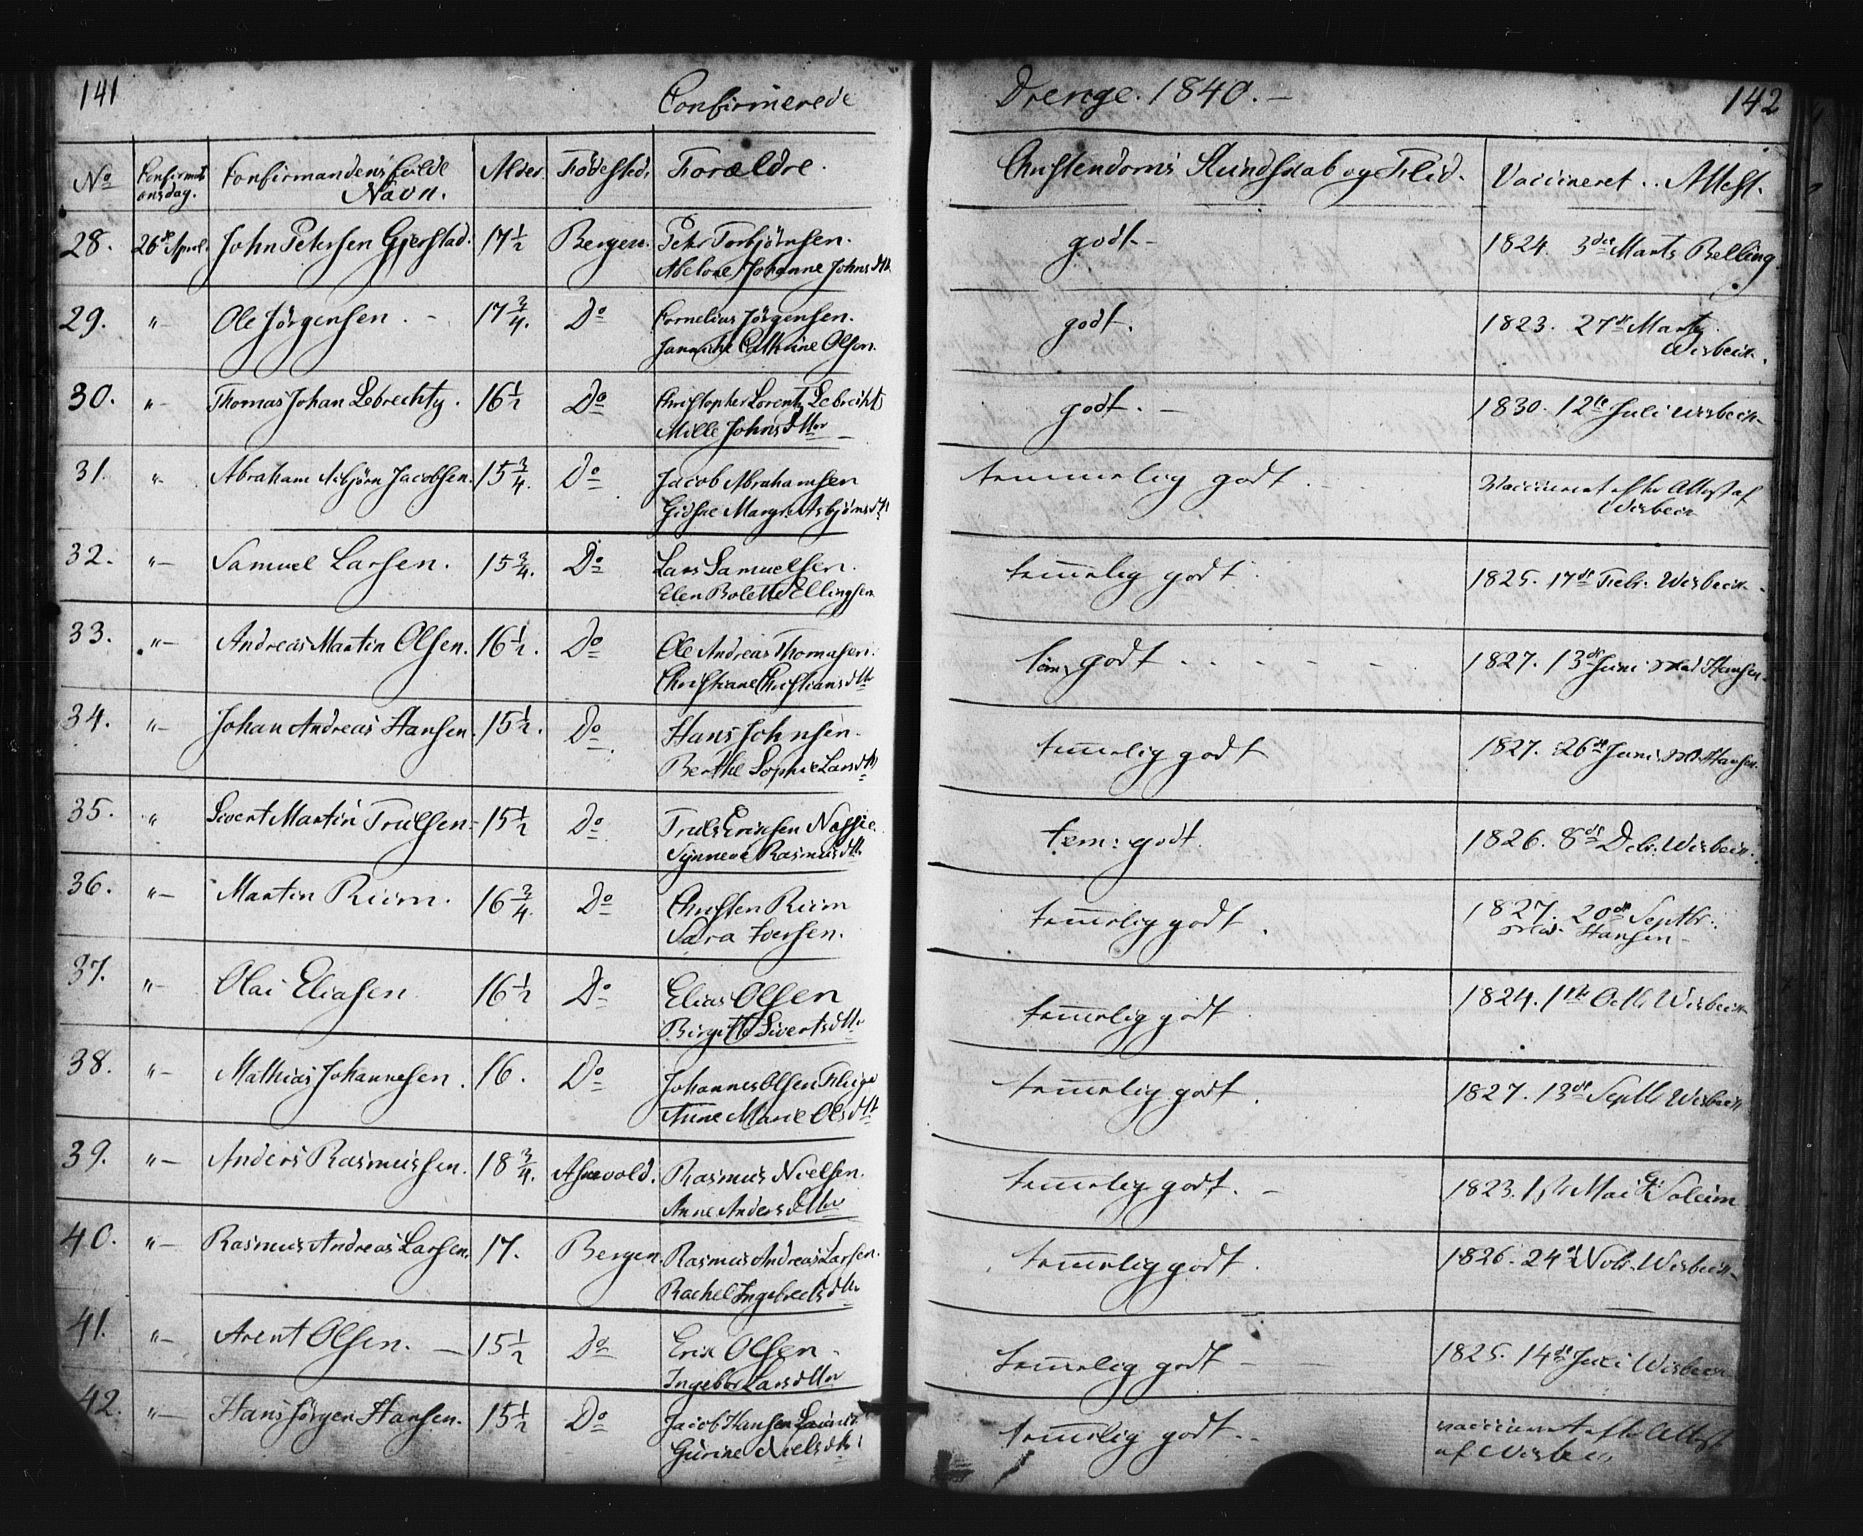 141
Confirmerede
Drenge. 1840. –
142
No Confirmations dag. Confirmandens fulde Navn. Alder. Fødested. Forældre. Christendoms Kundskab og Flid. Vaccineret. Attest.
28. 26de April. John Petersen Gjerstad. 17 1/2 Bergen. Peter Torbjörnsen. godt – 1824. 3die Marts Belling
Abelone Johanne Johnsdttr
29. "– Ole Jörgensen. – 17 3/4. Do Cornelius Jörgensen. godt. 1823. 27de Marts
Cathrine Olsen. Wisbech.
30. "– Thomas Johan Lebrechtz. 16 1/2 Do Christopher Lorentz Lebrecht godt. – 1830. 12te Juli Wisbech
Mille Johnsdtter
31. "– Abraham Asbjörn Jacobsen. 15 3/4. Do Jacob Abrahamsen temmelig godt. Vaccineret efter Attest af
Margr. Asbjörnsdtr Wisbech
32. "– Samuel Larsen. 15 3/4. Do Lars Samuelsen. temmelig godt 1825. 17de Febr. Wisbech
Elen Bolette Ellingsen
33. "– Andreas Martin Olsen. 16 1/2. Do Ole Andreas Thomasen. tem: godt. – – – – 1827. 13de Juni Mad Hansen
Christiane Christiansdttr
34. "– Johan Andreas Hansen. 15 1/2. Do Hans Johnsen. temmelig godt 1827. 26de Juni Hansen
Berthe Sophie Larsdtr
35. " Sivert Martin Trulsen – 15 1/2 Do Truls Ericksen tem: godt. 1826. 8de Dcbr. Wisbech.
Synneve Rasmusdttr
36. "– Martin Riim. 16 3/4. Do Christen Riim temmelig godt. 1827. 20de Septbr.
Sara Iversen. Mad. Hansen –
37. "– Olai Eliasen 16 1/2 Do Elias Olsen temmelig godt 1824. 1ste Octb. Wisbech
Birgitte Sivertsdttr
38. "– Mathias Johannesen. 16. Do Johannes Olsen temmelig godt. 1827. 13de Septb Wisbech
Anne Marie Olsdtt
39. "– Anders Rasmussen. 18 3/4. Rasmus Nielsen. temmelig godt. – 1823. Mai Soleim
Anne Andersdtter
40. "– Rasmus Andreas Larsen. 17. Bergen. Rasmus Andreas Larsen. temmelig godt. 1826. 24de Nvbr. Wisbech
Rachel Ingebrectsdttr
41. "– Arent Olsen. – 15 1/2 Do Erik Olsen – temmelig godt – 1825. 14de Juli Wisbech
Ingebor Larsdtter
42. "– Hans Jörgen Hansen. 15 1/2 Do Jacob Hansen temmelig godt. – vaccineret efter Attest
Gurine Nielsdtr af Wisbech